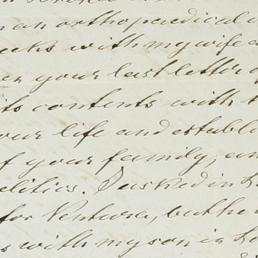 an orthopaedical
weeks with my wife
your last letter
its contents with
your life and establ
of your family, an
elitics. I asked in
for Ventura, but he
with my son is